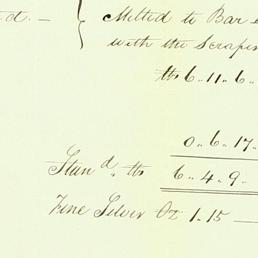 d. — { Melted to Bar
with the Scrapin
lb 6.. 11.. 6..
0.. 6.. 17..
Stan^d.. lb 6.. 4.. 9..
Fine Silver Oz 1.. 15 —